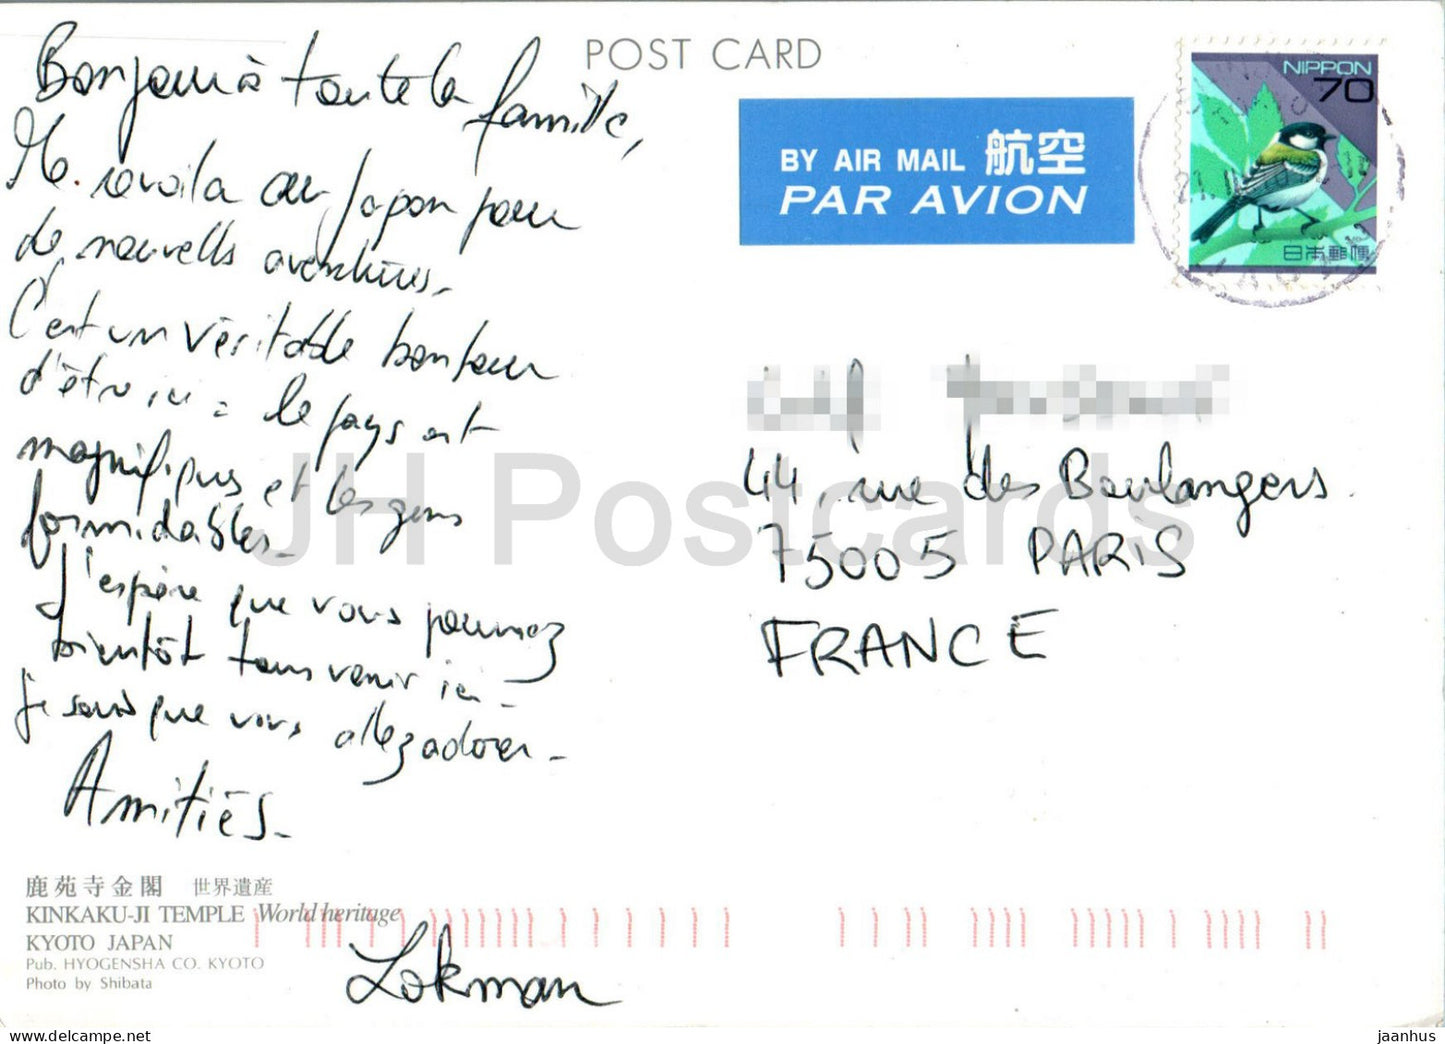 POST CARD
Bonjour à toute la famille,
Me revoila au Japon pour
de nouvells aventures.
C'est un véritable bonheur
d'être ici : le pays est
magnifiques et les gens
formidables.
J'espère que vous pourrez
bientôt tous venir ici.
je sais que vous allez adorer.
Amitiés.
Lokman
鹿苑寺金閣 世界遺産
KINKAKU-JI TEMPLE World heritage
KYOTO JAPAN
Pub. HYOGENSHA CO. KYOTO
Photo by Shibata
BY AIR MAIL 航空
PAR AVION
NIPPON
70
日本郵便
44, rue des Boulangers.
75005 PARIS
FRANCE
JH Postcards
delcampe.net
jaanhus